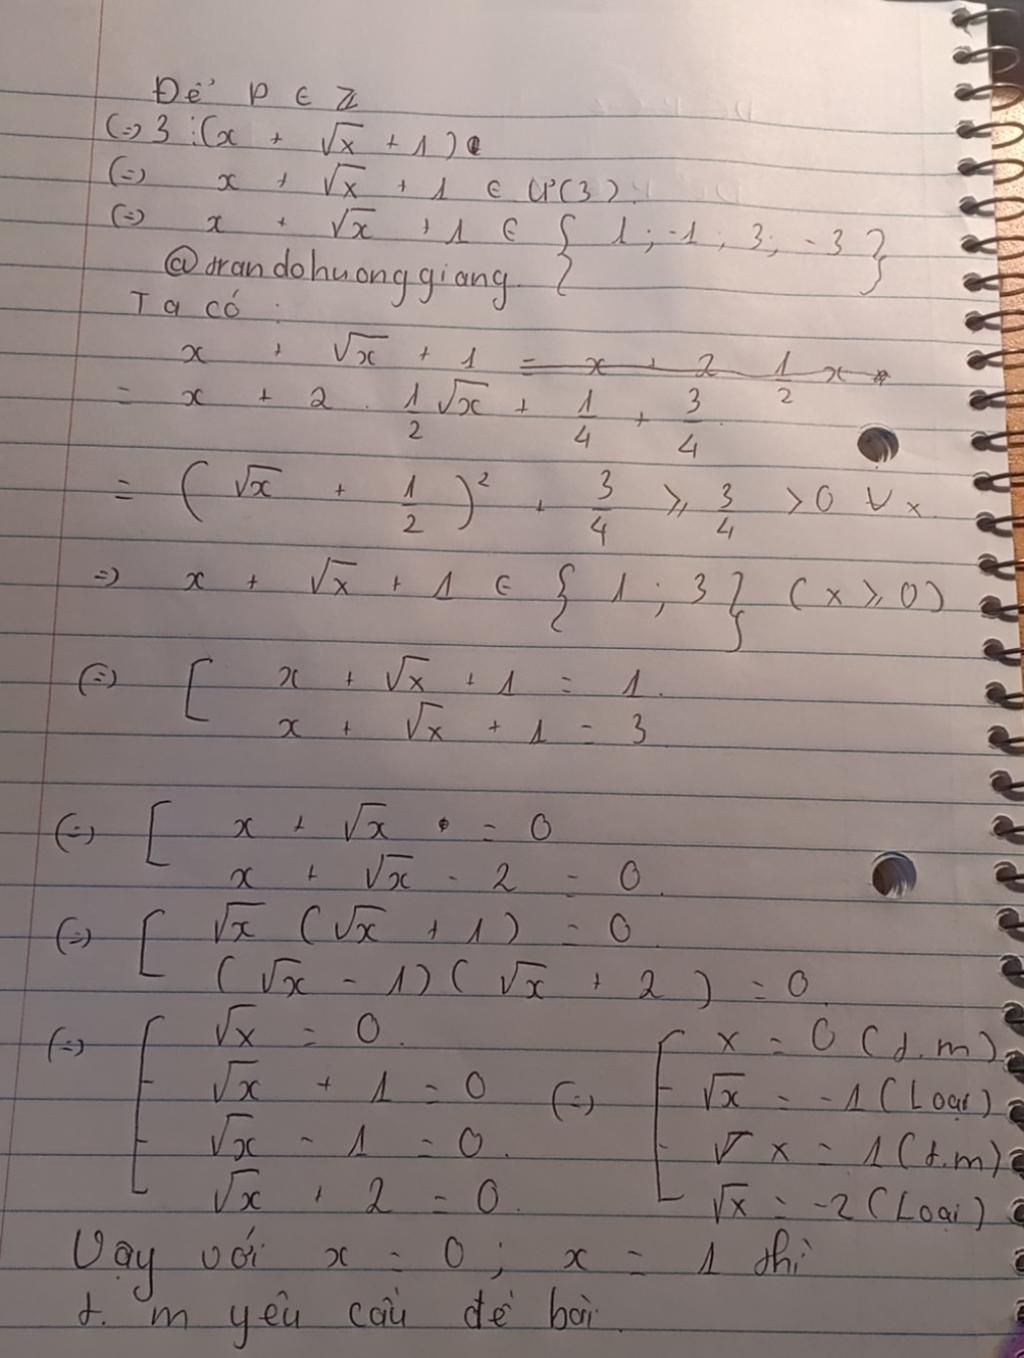 Để P ∈ ℤ
(=) 3 ⋮ (x + √x + 1)
(=) x + √x + 1 ∈ Ư(3)
(=) x + √x + 1 ∈ { 1 ; -1 ; 3 ; -3 }
@trandohuonggiang
Ta có :
x + √x + 1 = x + 2 1/2 x
= x + 2 . 1/2 √x + 1/4 + 3/4
= ( √x + 1/2 )² + 3/4 ⩾ 3/4 > 0 ∀ x
=> x + √x + 1 ∈ { 1 ; 3 } ( x ⩾ 0 )
(=) [ x + √x + 1 = 1
x + √x + 1 = 3
(=) [ x + √x = 0
x + √x - 2 = 0
(=) [ √x ( √x + 1 ) = 0
( √x - 1 ) ( √x + 2 ) = 0
(=) [ √x = 0
√x + 1 = 0
√x - 1 = 0
√x + 2 = 0
(=) [ x = 0 ( t.m )
√x = -1 ( Loại )
√x = 1 ( t.m )
√x = -2 ( Loại )
Vậy với x = 0 ; x = 1 thì
t. m yêu cầu đề bài.